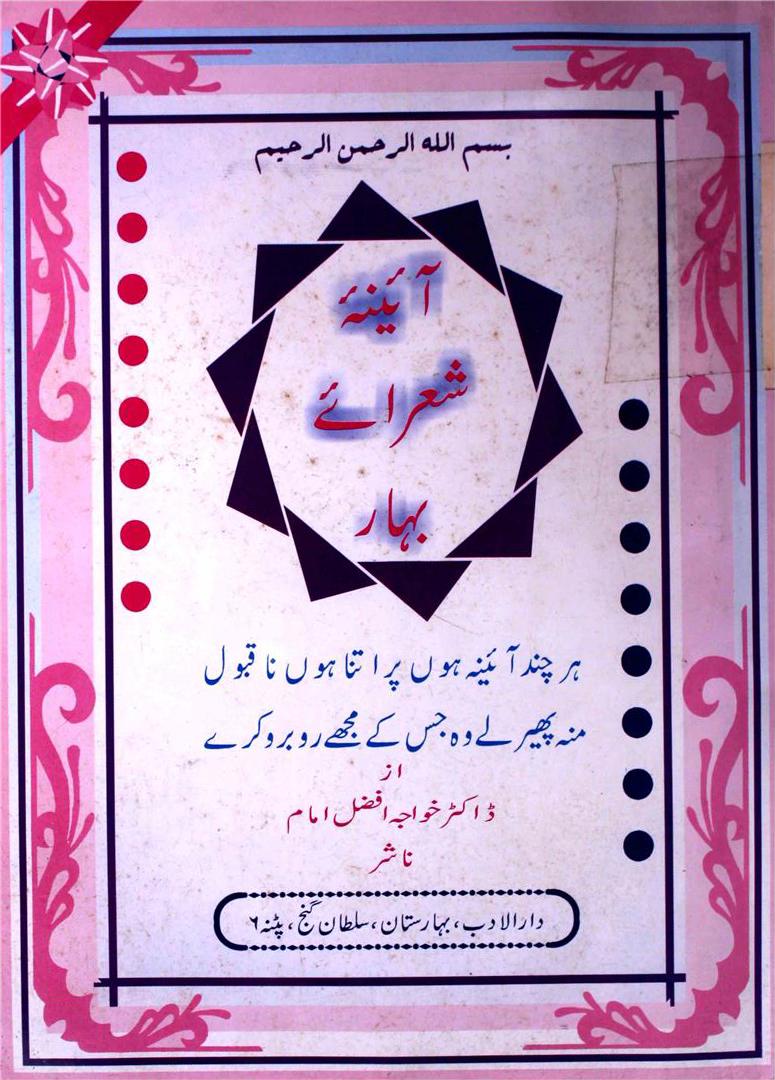 بسم الله الرحمن الرحيم
آئینۂ
شعرائے
بہار
ہر چند آئینہ ہوں پر اتنا ہوں نا قبول
منہ پھیر لے وہ جس کے مجھے روبرو کرے
از
ڈاکٹر خواجہ افضل امام
ناشر
دارالادب، بہارستان، سلطان گنج، پٹنہ ۶